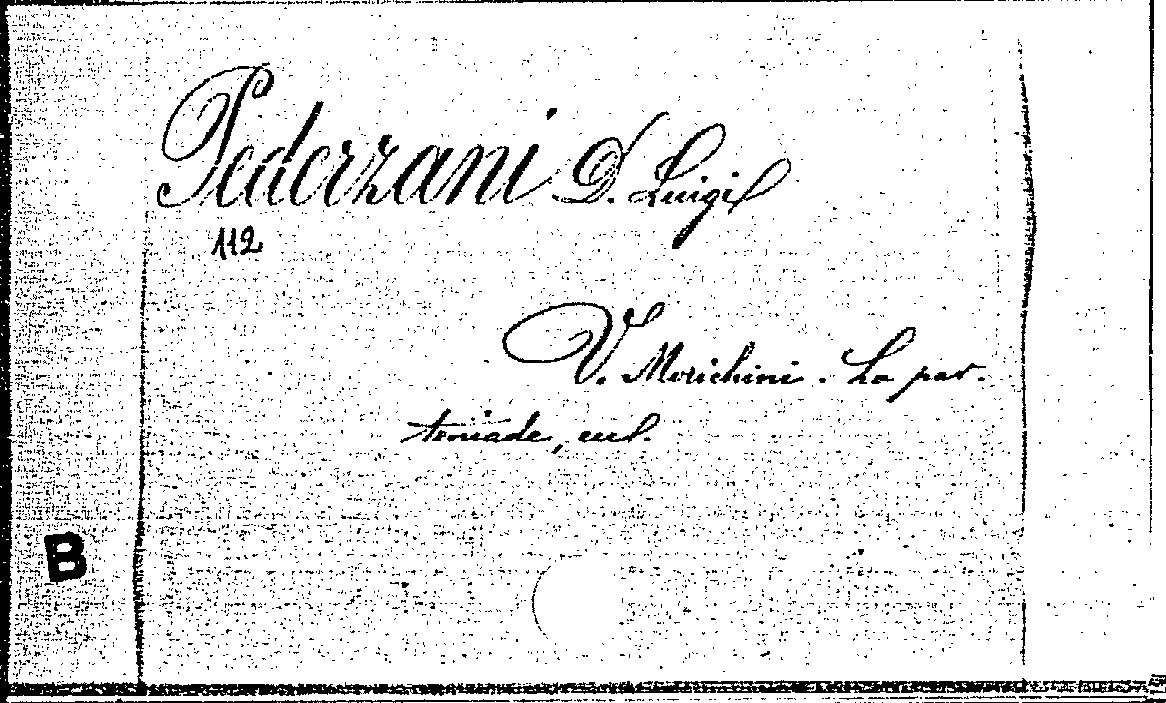 Pederzani D. Luigi
112
V. Morichini. La par-
teniade, ecc.
B